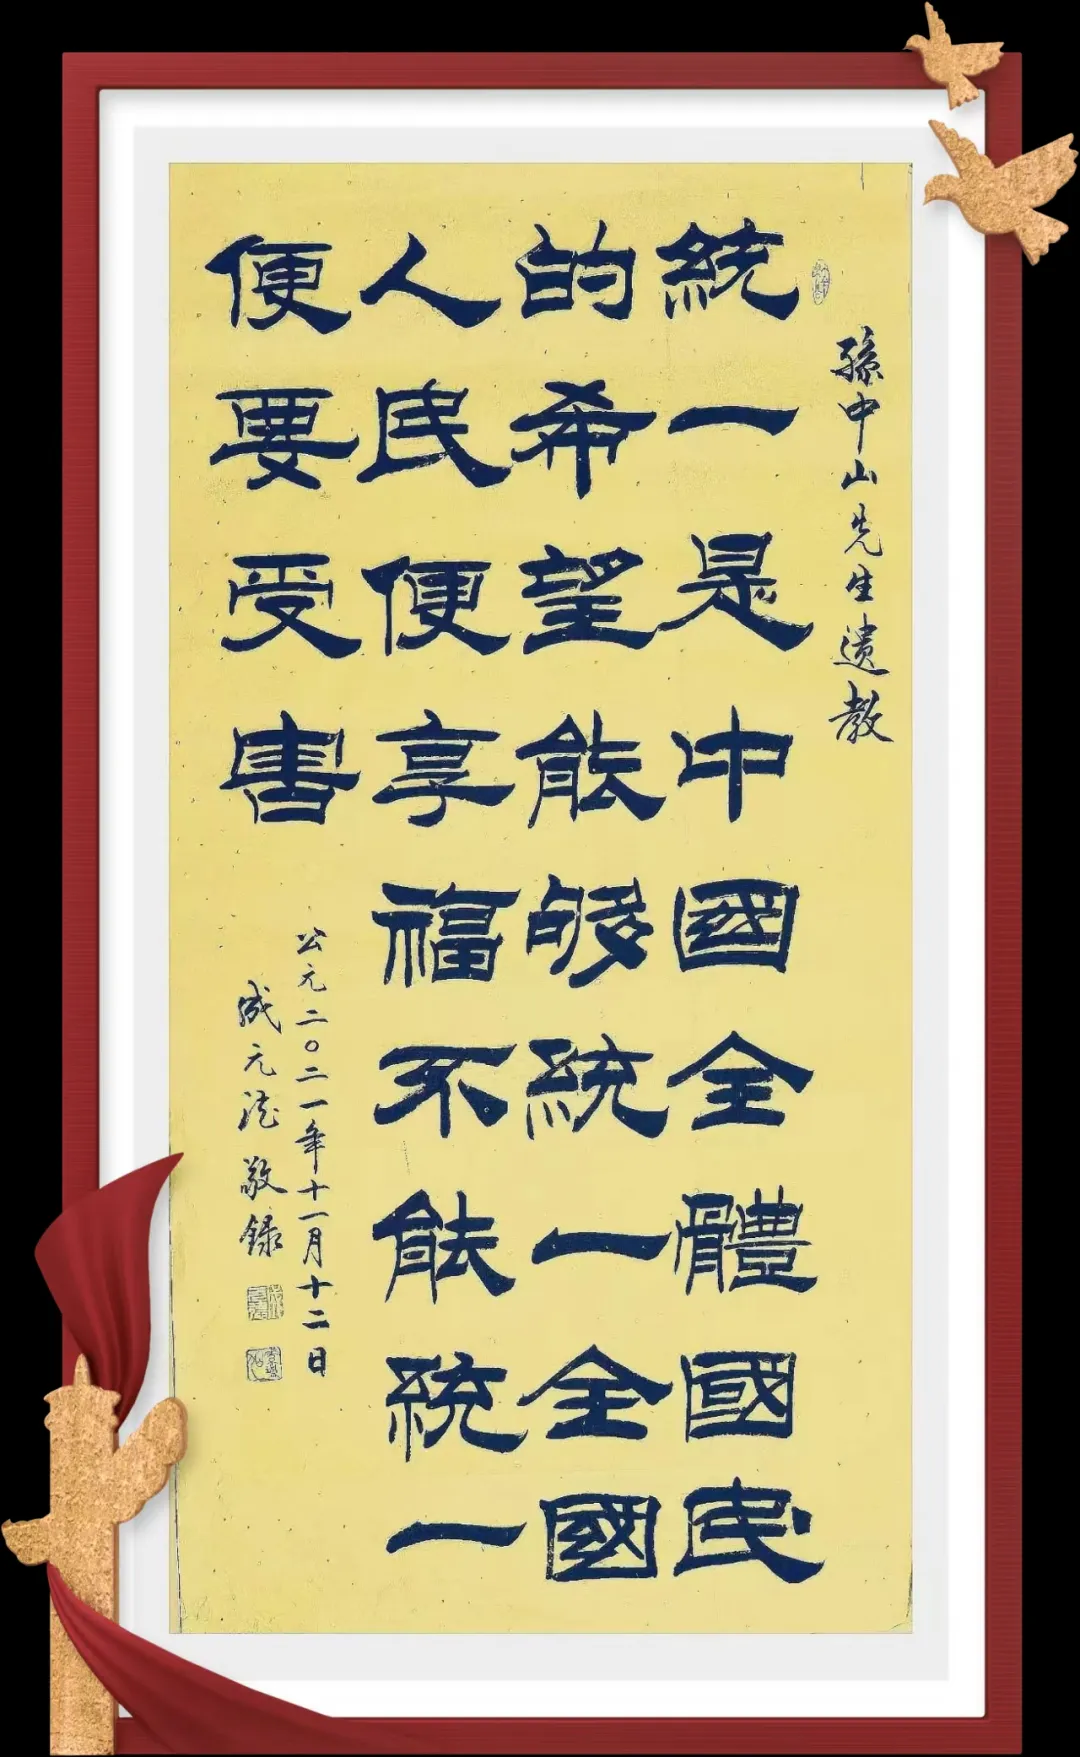 孫中山先生遺教
統一是中國全體國民
的希望能够統一全國
人民便享福不能統一
便要受害
公元二〇二一年十一月十二日
成元法敬録